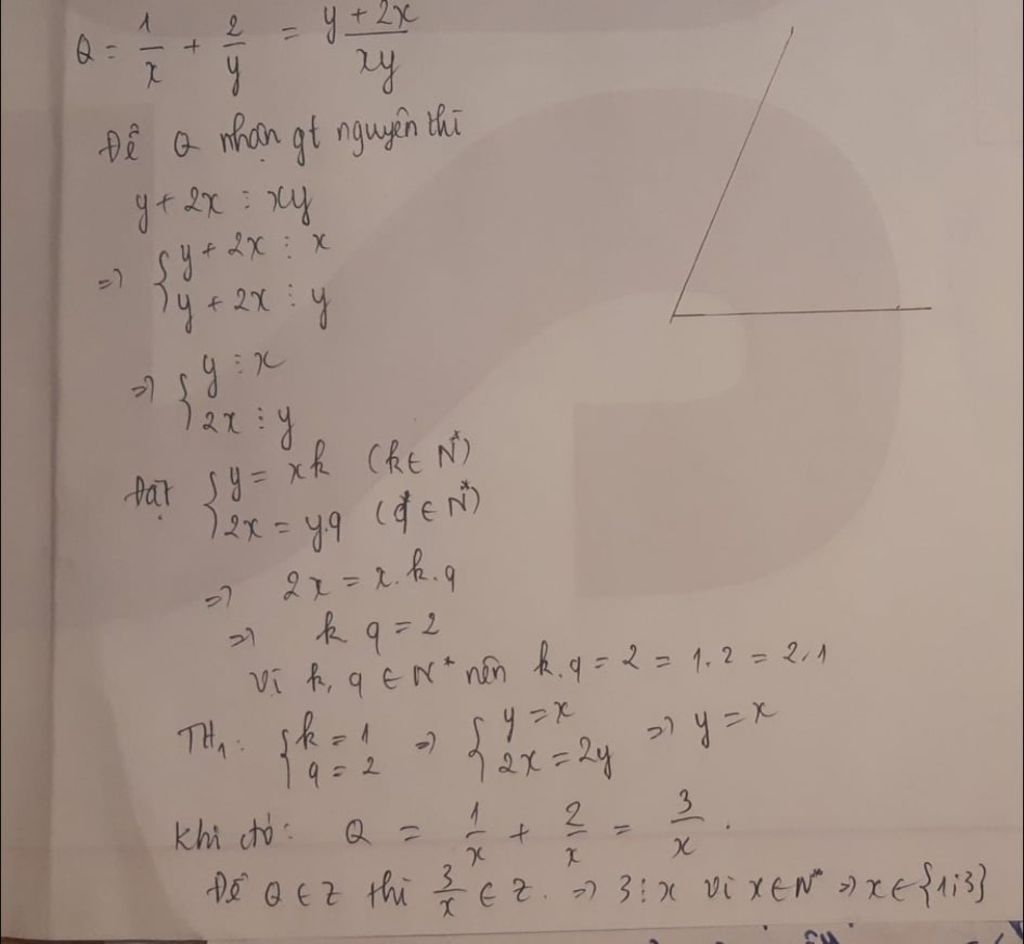 Q = 1/x + 2/y = (y + 2x)/xy
Để Q nhận gt nguyên thì
y + 2x ⋮ xy
=> { y + 2x ⋮ x
{ y + 2x ⋮ y
=> { y ⋮ x
{ 2x ⋮ y
Đặt { y = xk (k ∈ N*)
{ 2x = y.q (q ∈ N*)
=> 2x = x.k.q
=> k q = 2
Vì k, q ∈ N* nên k.q = 2 = 1.2 = 2.1
TH₁: { k = 1 => { y = x => y = x
{ q = 2 { 2x = 2y
Khi đó: Q = 1/x + 2/x = 3/x.
Để Q ∈ Z thì 3/x ∈ Z. => 3 ⋮ x vì x ∈ N* => x ∈ {1;3}